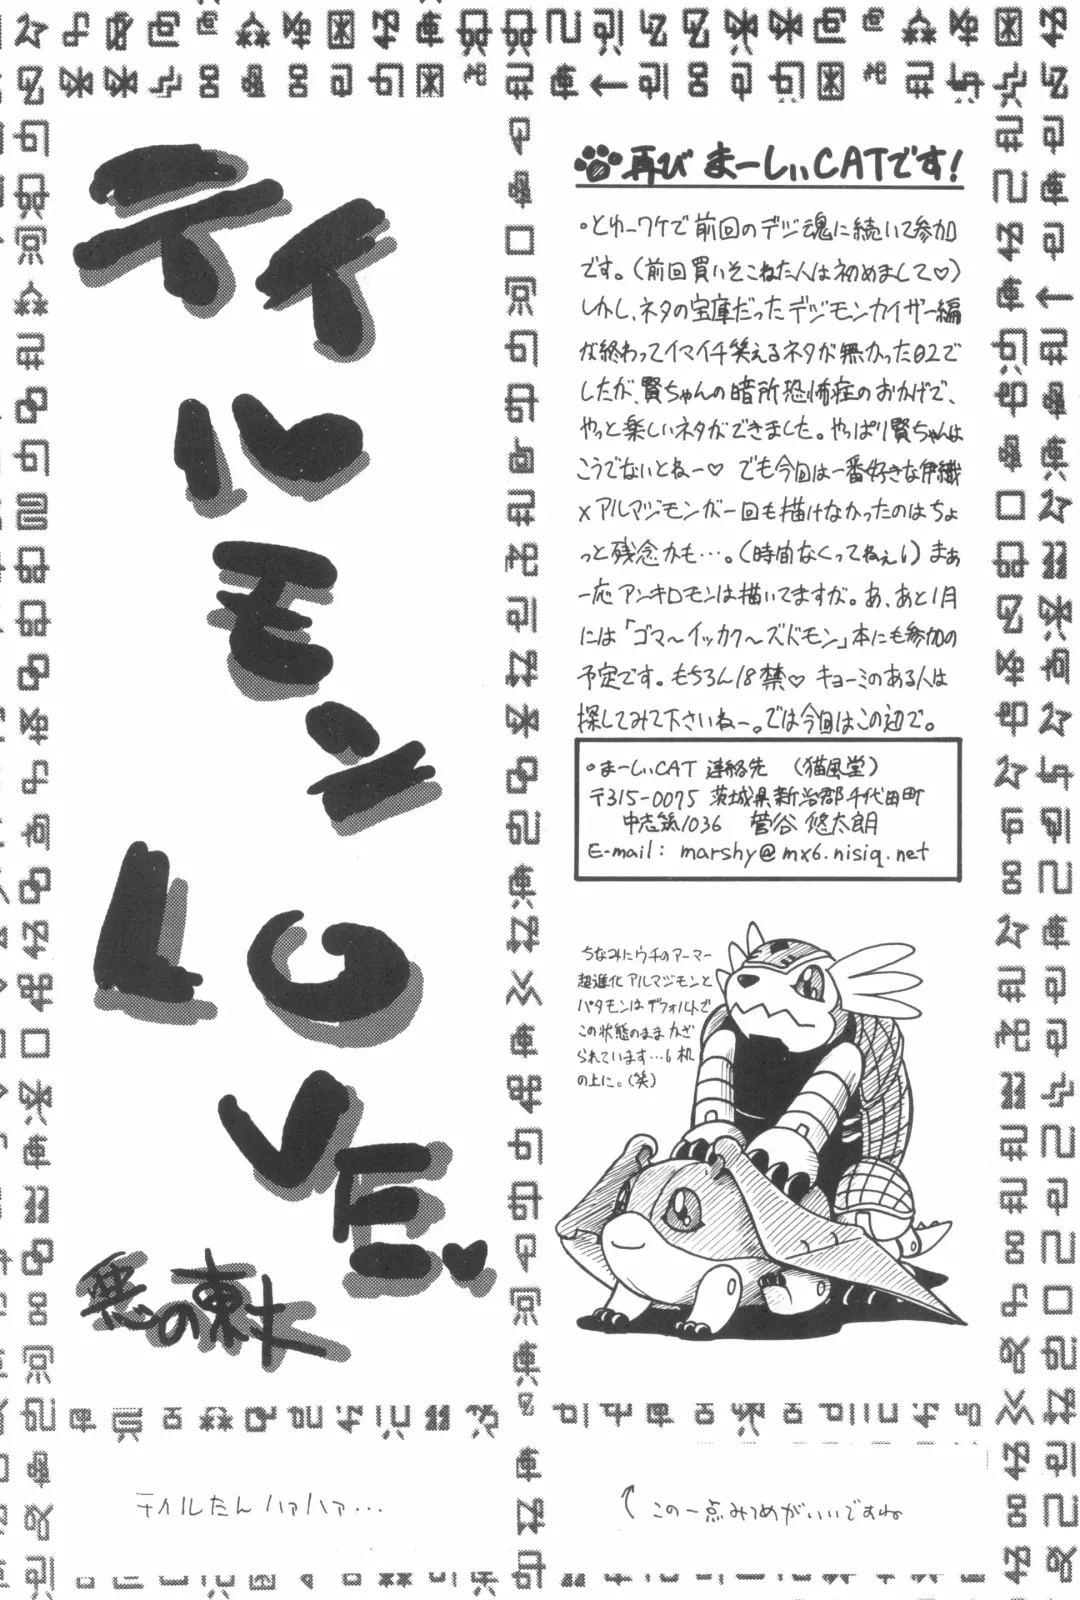 再び まーしぃCATです!
・とゆーワケで前回のデジ魂に続いて参加
です。(前回買いそこねた人は初めまして♡)
しかし、ネタの宝庫だったデジモンカイザー編
が終わってイマイチ笑えるネタが無かった02で
したが、賢ちゃんの暗所恐怖症のおかげで、
やっと楽しいネタができました。やっぱり賢ちゃんは
こうでないとねー♡ でも今回は一番好きな伊織
×アルマジモンが一回も描けなかったのはちょ
っと残念かも…。(時間なくってねぇ) まぁ
一応アンキロモンは描いてますが。あ、あと1月
には「ゴマ〜イッカク〜ズドモン」本にも参加の
予定です。もちろん18禁♡ キョーミのある人は
探してみて下さいねー。では今回はこの辺で。
・まーしぃCAT 連絡先 (猫風堂)
〒315-0075 茨城県新治郡千代田町
中志筑1036 菅谷 悠太朗
E-mail: marshy@mx6.nisiq.net
ちなみにウチのアーマー
超進化アルマジモンと
パタモンはデフォルトで
この状態のままかざ
られています…机
の上に。(笑)
↑この一点みつめがいいですね
テイルモン
LOVE.♥
悪の東士
テイルたんハァハァ…